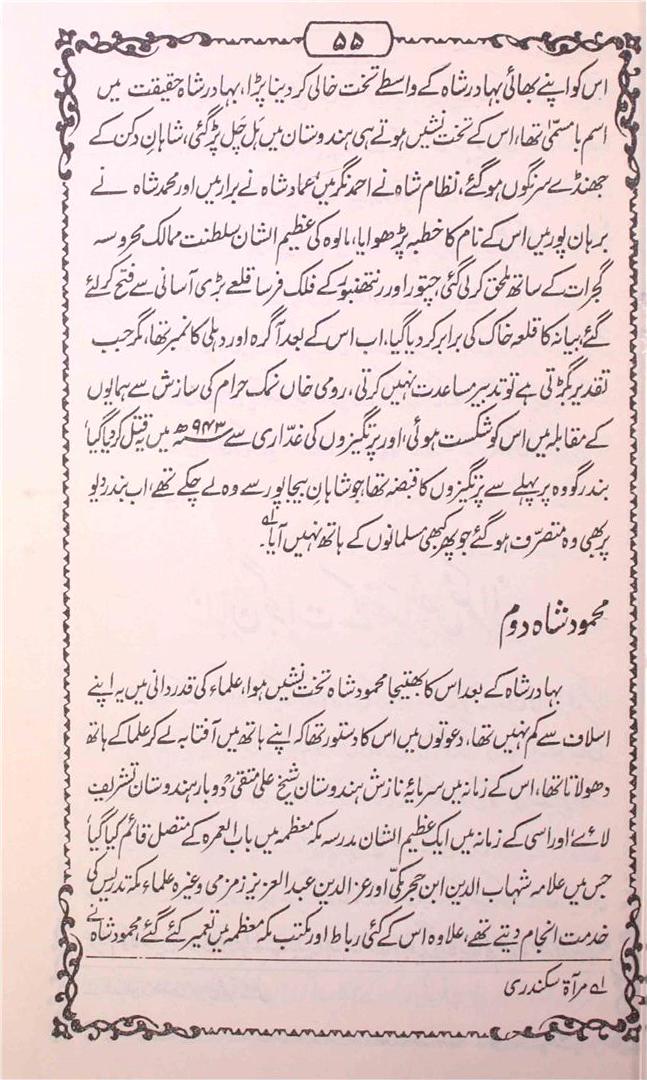 ۵۵
اس کو اپنے بھائی بہادر شاہ کے واسطے تخت خالی کر دینا پڑا، بہادر شاہ حقیقت میں
اسم بامسمّی تھا، اس کے تخت نشیں ہوتے ہی ہندوستان میں ہَل چَل پڑگئی، شاہانِ دکن کے
جھنڈے سرنگوں ہوگئے، نظام شاہ نے احمد نگر میں، عماد شاہ نے برار میں اور محمد شاہ نے
برہان پور میں اس کے نام کا خطبہ پڑھوایا، مالوہ کی عظیم الشان سلطنت ممالک محروسہ
گجرات کے ساتھ ملحق کرلی گئی، چتوڑ اور رنتھنبور کے فلک فرسا قلعے بڑی آسانی سے فتح کرلئے
گئے، بیانہ کا قلعہ خاک کی برابر کر دیا گیا، اب اس کے بعد آگرہ اور دہلی کا نمبر تھا، مگر جب
تقدیر بگڑتی ہے تو تدبیر مساعدت نہیں کرتی، رومی خاں نمک حرام کی سازش سے ہمایوں
کے مقابلہ میں اس کو شکست ہوئی، اور پرتگیزوں کی غدّاری سے ۹۴۳ھ میں یہ قتل کر دیا گیا،
بندر گووہ پر پہلے سے پرتگیزوں کا قبضہ تھا، جو شاہانِ بیجاپور سے وہ لے چکے تھے، اب بندر دیو
پر بھی وہ متصرّف ہوگئے جو پھر کبھی مسلمانوں کے ہاتھ نہیں آیا۔ ؎۱
محمود شاہ دوم
بہادر شاہ کے بعد اس کا بھتیجا محمود شاہ تخت نشیں ہوا، علماء کی قدردانی میں یہ اپنے
اسلاف سے کم نہیں تھا، دعوتوں میں اس کا دستور تھا کہ اپنے ہاتھ میں آفتابہ لے کر علما کے ہاتھ
دھولاتا تھا، اس کے زمانہ میں سرمایۂ نازش ہندوستان شیخ علی متقیؒ دوبار ہندوستان تشریف
لائے، اور اسی کے زمانہ میں ایک عظیم الشان مدرسہ مکہ معظمہ میں باب العمرہ کے متصل قائم کیا گیا،
جس میں علامہ شہاب الدین ابن حجر مکّی اور عز الدین عبد العزیز زمزمی وغیرہ علماء مکہ تدریس کی
خدمت انجام دیتے تھے، علاوہ اس کے کئی رباط اور مکتب مکہ معظمہ میں تعمیر کئے گئے، محمود شاہ نے
؎۱ مرآۃ سکندری